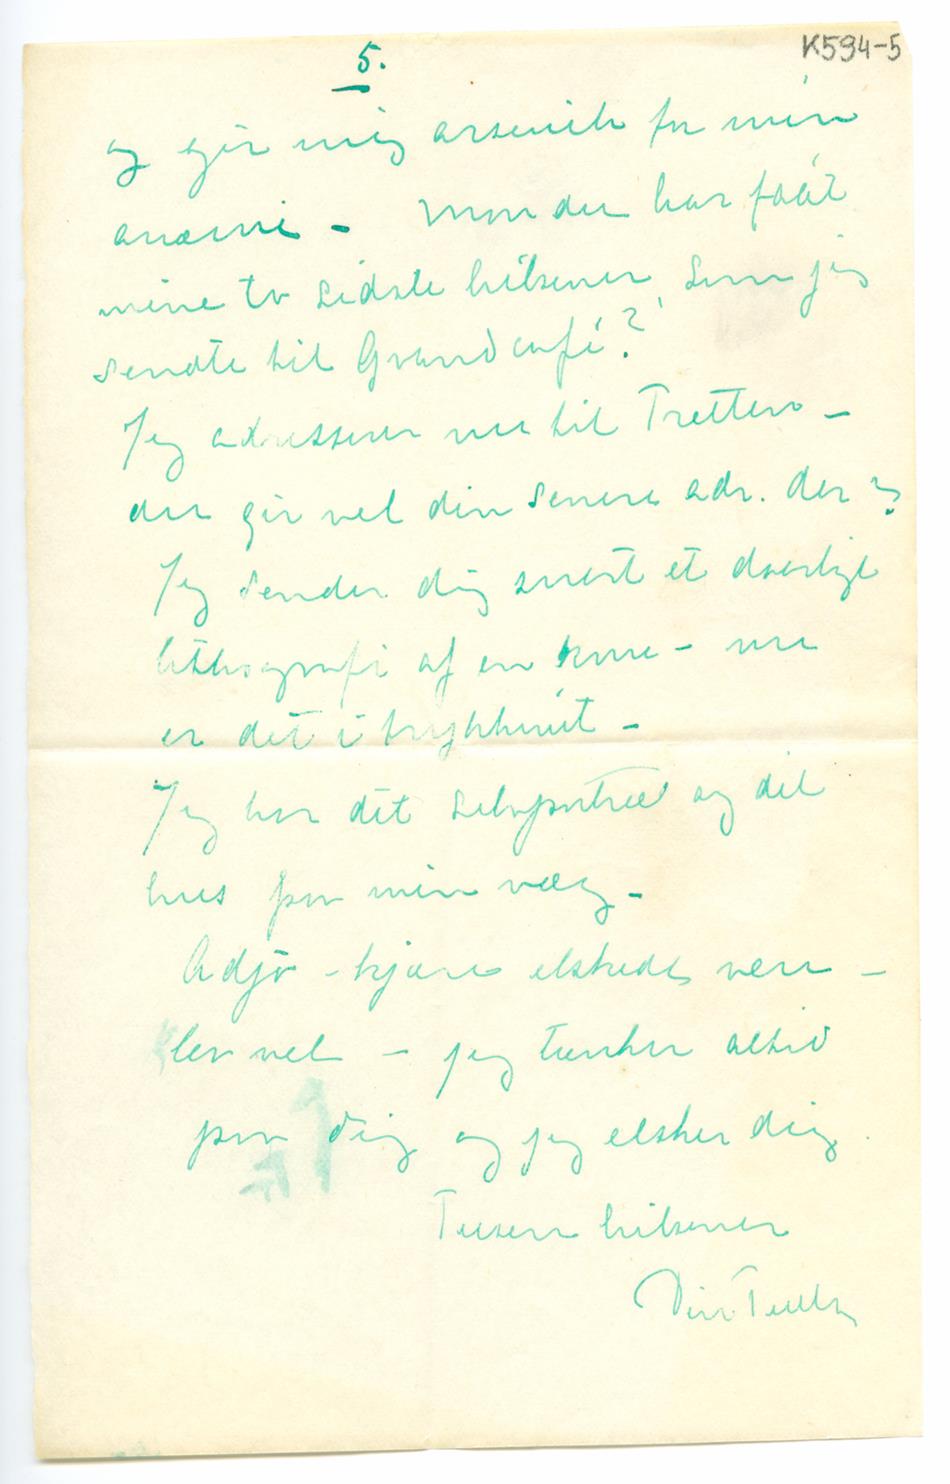 K594-5
5.
og gir mig arsenik for min
anæmi – Mon du har faât
mine to sidste hilsener, som jeg
sendte til Grand café?
Jeg adresserer nu til Tretten –
du gir vel din senere adr. der?
Jeg sender dig snart et daarligt
lithografi af en kone – nu
er det i trykkeriet –
Jeg har dit selvportræt og dit
hus paa min væg –
Adjø – kjære elskede ven –
lev vel – jeg tænker altid
paa dig og jeg elsker dig
Tusen hilsener
Din Tulla